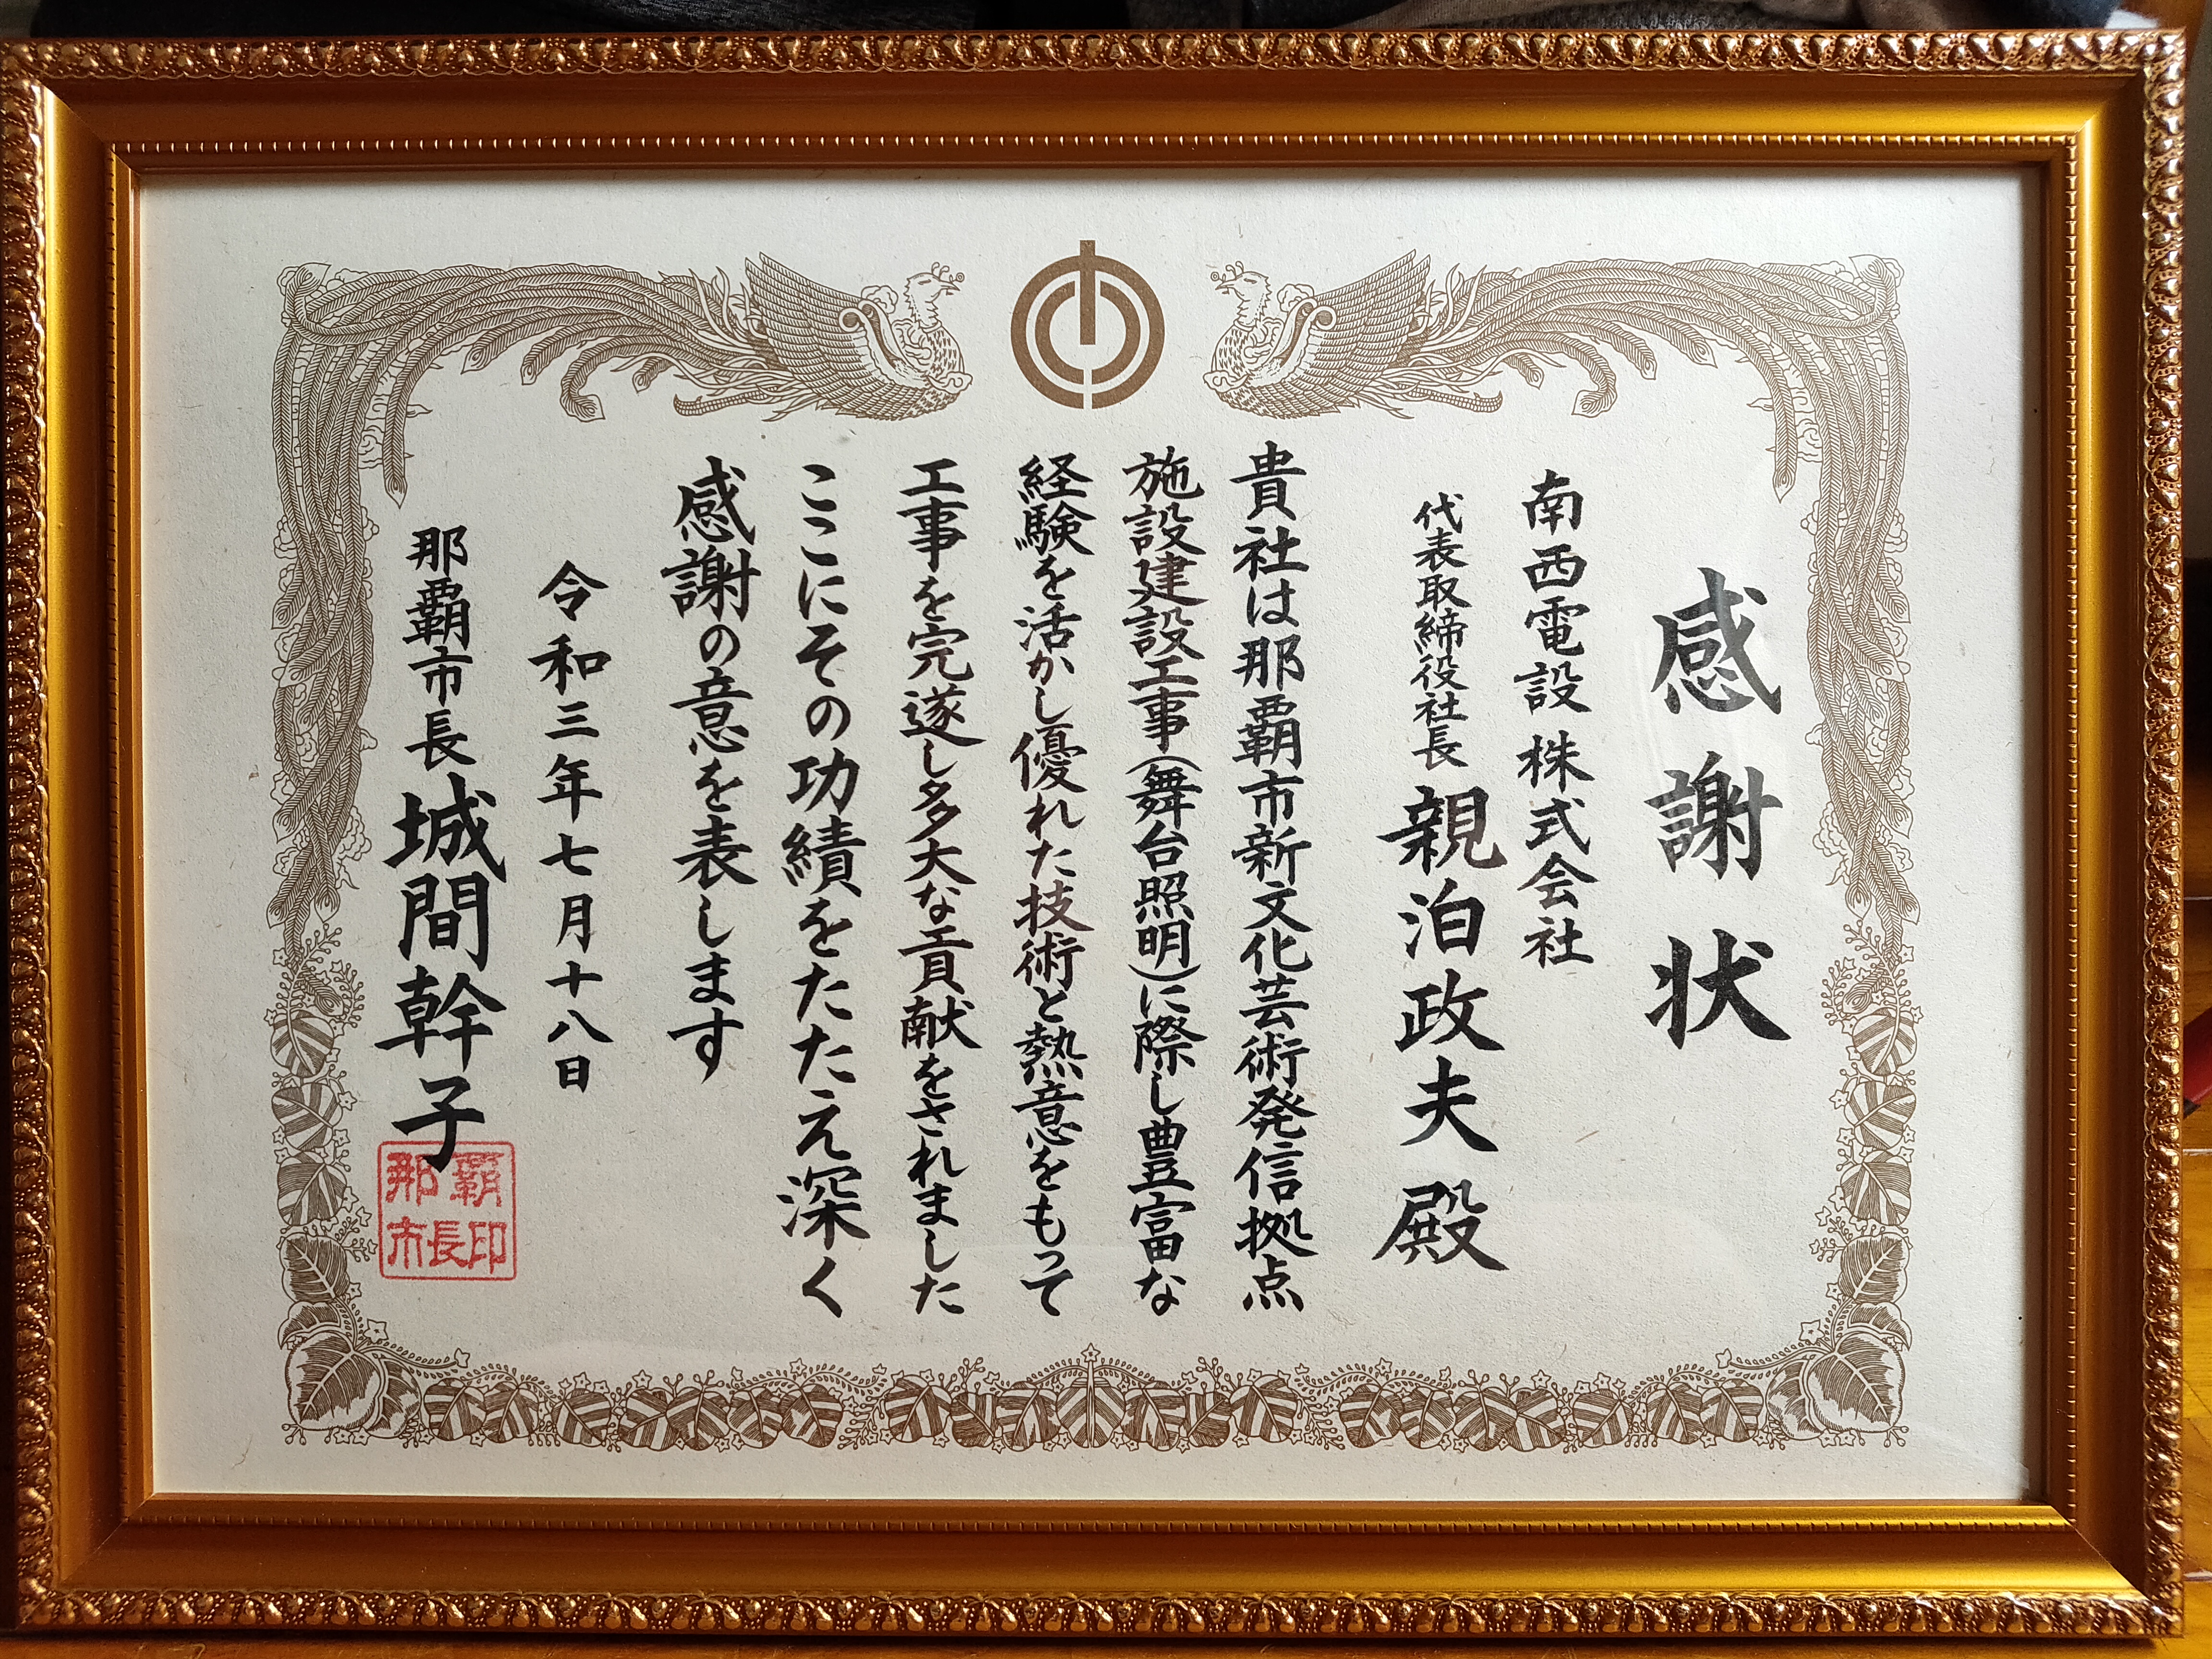 感謝状
南西電設株式会社
代表取締役社長 親泊政夫殿
貴社は那覇市新文化芸術発信拠点
施設建設工事(舞台照明)に際し豊富な
経験を活かし優れた技術と熱意をもって
工事を完遂し多大な貢献をされました
ここにその功績をたたえ深く
感謝の意を表します
令和三年七月十八日
那覇市長 城間幹子
那覇
市長印